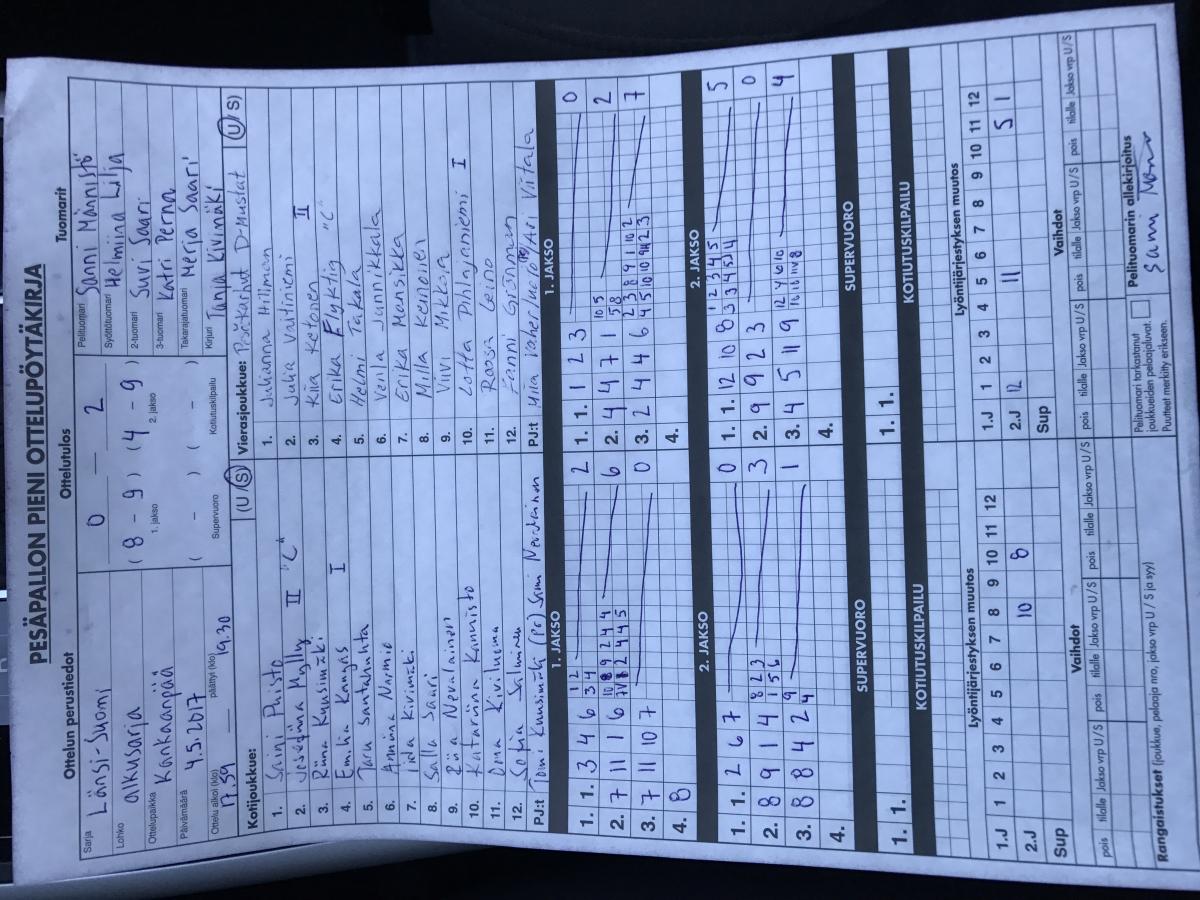 PESÄPALLON PIENI OTTELUPÖYTÄKIRJA
Ottelun perustiedot
Sarja Länsi-Suomi
Lohko alkusarja
Ottelupaikka Kankaanpää
Päivämäärä 4.5.2017
Ottelu alkoi (klo) 17.59 päättyi (klo) 19.30
Ottelutulos
0 — 2
( 8 - 9 ) ( 4 - 9 )
1. jakso 2. jakso
( - ) ( - )
Supervuoro Kotiutuskilpailu
Tuomarit
Pelituomari Sanni Männistö
Syöttötuomari Helmiina Lilja
2-tuomari Suvi Saari
3-tuomari Katri Perna
Takarajatuomari Merja Saari
Kirjuri Tanja Kivimäki
Kotijoukkue: (U/S)
1. Saini Puisto
2. Josefiina Mylly II "C"
3. Riina Kuusimäki
4. Emilia Kangas I
5. Taru Santahuhta
6. Anniina Narmio
7. Iida Kivimäki
8. Salla Saari
9. Riia Nevalainen
10. Katariina Kannisto
11. Oona Kiviluoma
12. Sofia Salminen
PJ:t Tomi Kuusimäki (PJ) Sami Nevalainen
Vierasjoukkue: Pesäkarhut D-Mustat (U/S)
1. Juhanna Hillman
2. Juha Valtiniemi
3. Kiia Ketonen II
4. Erika Flyktig "C"
5. Helmi Takala
6. Venla Junnikkala
7. Erika Mansikka
8. Milla Keinonen
9. Viivi Mikkola
10. Lotta Pihlajaniemi I
11. Roosa Leino
12. Fanni Grönman
PJ:t Miia Vaherluoto/Ari Viitala
1. JAKSO
1. 1. 3 4 6 1 2 3 4 2
2. 7 11 1 6 10 8 9 2 4 4 6
3. 7 11 10 7 0
4. 8
1. JAKSO
1. 1. 1 2 3 0
2. 4 4 7 1 10 5 5 8 2
3. 2 4 4 6 2 3 8 9 10 2 4 5 10 10 11 2 3 7
4.
2. JAKSO
1. 1. 2 6 7 0
2. 8 9 1 4 8 2 3 1 5 6 3
3. 8 4 2 9 4 1
4.
2. JAKSO
1. 1. 12 10 8 1 2 3 4 5 3 3 4 5 14 5
2. 9 9 2 3 0
3. 4 5 11 9 12 4 6 10 4
4.
SUPERVUORO
1. 1.
SUPERVUORO
1. 1.
KOTIUTUSKILPAILU
KOTIUTUSKILPAILU
Lyöntijärjestyksen muutos
1.J 1 2 3 4 5 6 7 8 9 10 11 12
2.J 10 8
Sup
Lyöntijärjestyksen muutos
1.J 1 2 3 4 5 6 7 8 9 10 11 12
2.J 12 11 5 1
Sup
Vaihdot
pois tilalle Jakso vrp U/S pois tilalle Jakso vrp U/S pois tilalle Jakso vrp U/S
Vaihdot
pois tilalle Jakso vrp U/S pois tilalle Jakso vrp U/S pois tilalle Jakso vrp U/S
Rangaistukset (joukkue, pelaaja nro, jakso vrp U / S ja syy)
Pelituomari tarkastanut
joukkueiden pelaajaluvat.
Puutteet merkitty erikseen.
Pelituomarin allekirjoitus